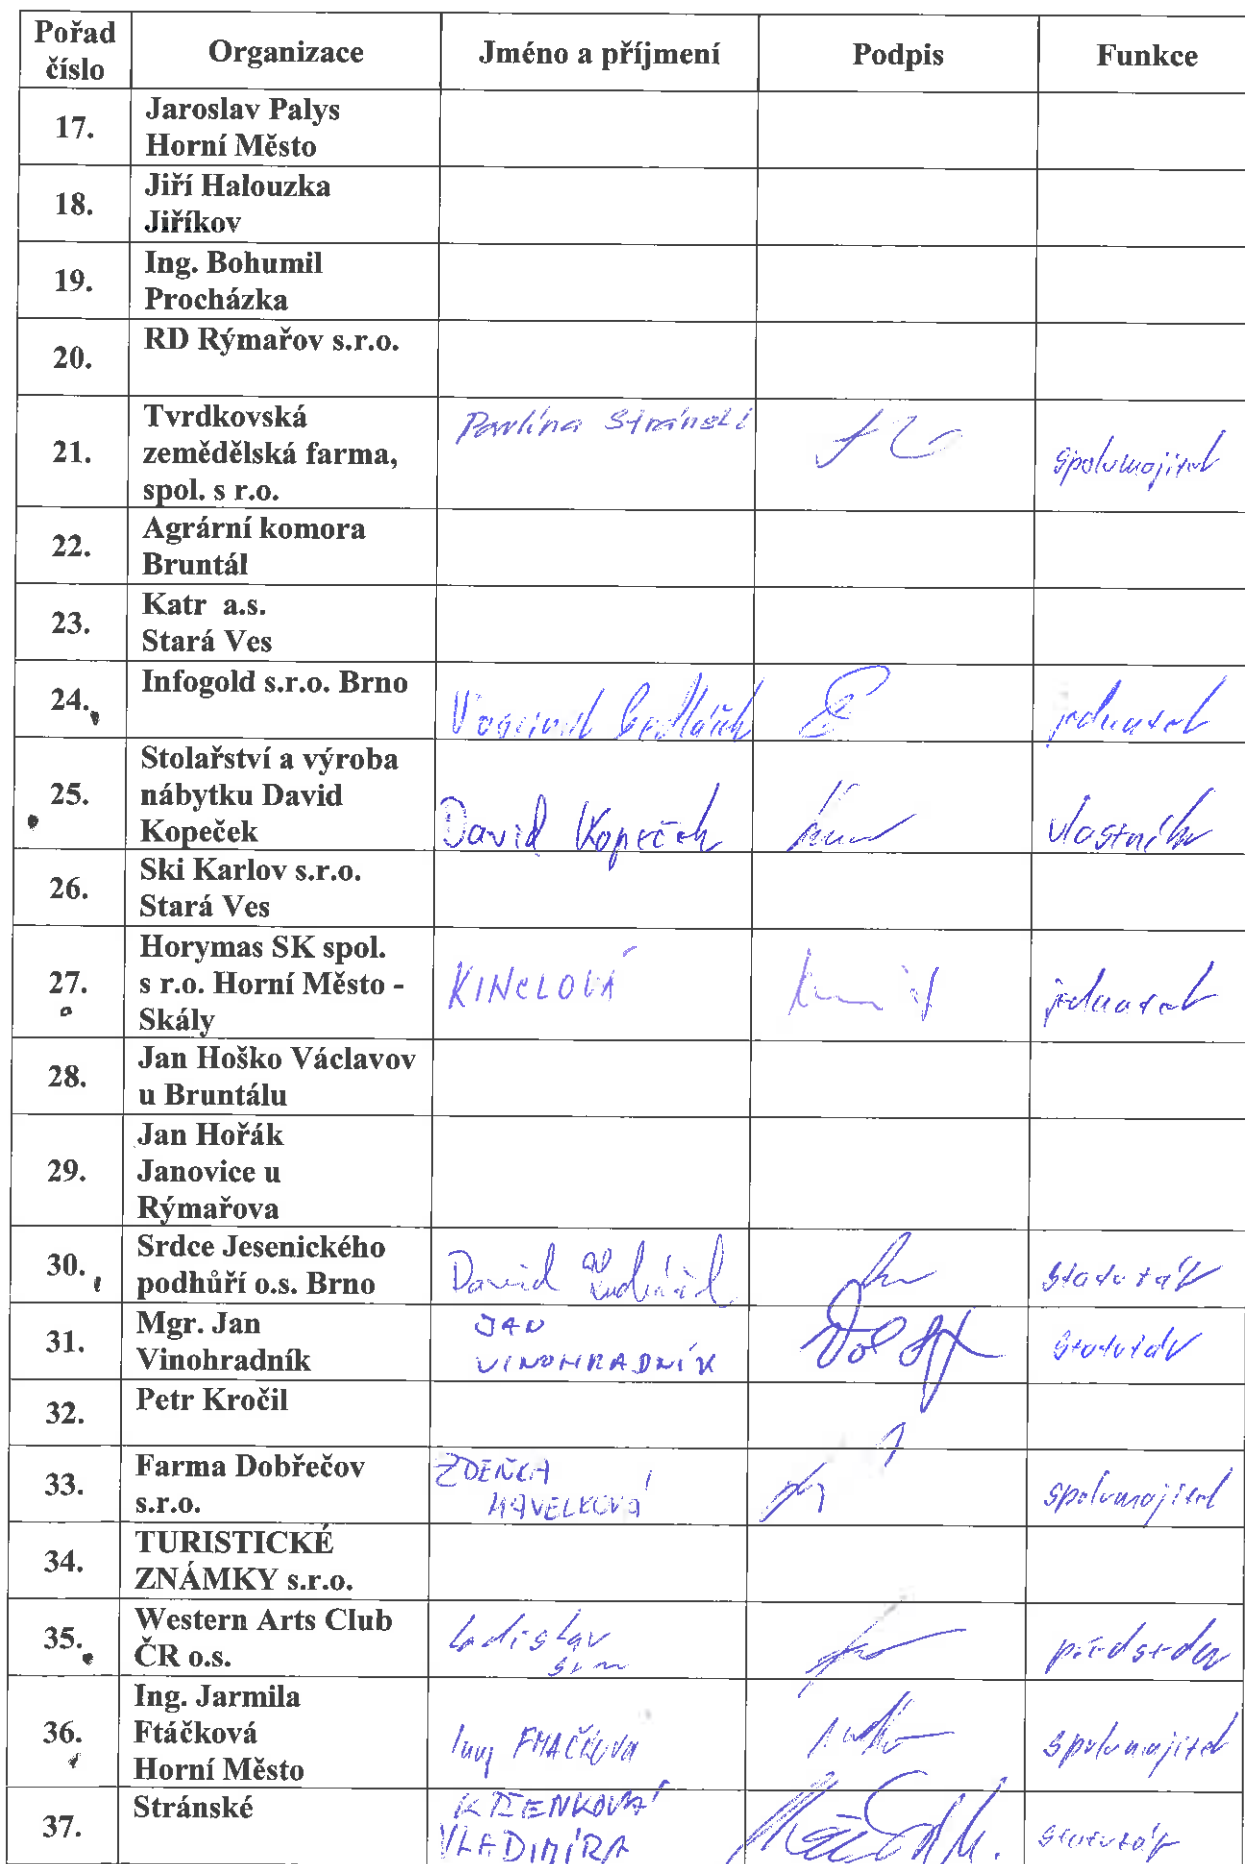 Pořad číslo Organizace Jméno a příjmení Podpis Funkce
17. Jaroslav Palys
Horní Město
18. Jiří Halouzka
Jiříkov
19. Ing. Bohumil
Procházka
20. RD Rýmařov s.r.o.
21. Tvrdkovská
zemědělská farma,
spol. s r.o.
Pavlína spolumajitel
22. Agrární komora
Bruntál
23. Katr a.s.
Stará Ves
24. Infogold s.r.o. Brno
jednatel
25. Stolařství a výroba
nábytku David
Kopeček
David Kopeček vlastník
26. Ski Karlov s.r.o.
Stará Ves
27. Horymas SK spol.
s r.o. Horní Město -
Skály
jednatel
28. Jan Hoško Václavov
u Bruntálu
29. Jan Hořák
Janovice u
Rýmařova
30. Srdce Jesenického
podhůří o.s. Brno
David statutář
31. Mgr. Jan
Vinohradník
JAN
VINOHRADNÍK statutář
32. Petr Kročil
33. Farma Dobřečov
s.r.o.
ZDEŇKA
HAVELKOVÁ spolumajitel
34. TURISTICKÉ
ZNÁMKY s.r.o.
35. Western Arts Club
ČR o.s.
Ladislav
předseda
36. Ing. Jarmila
Ftáčková
Horní Město
spolumajitel
37. Stránské
KŘENKOVÁ
VLADIMÍRA statutář